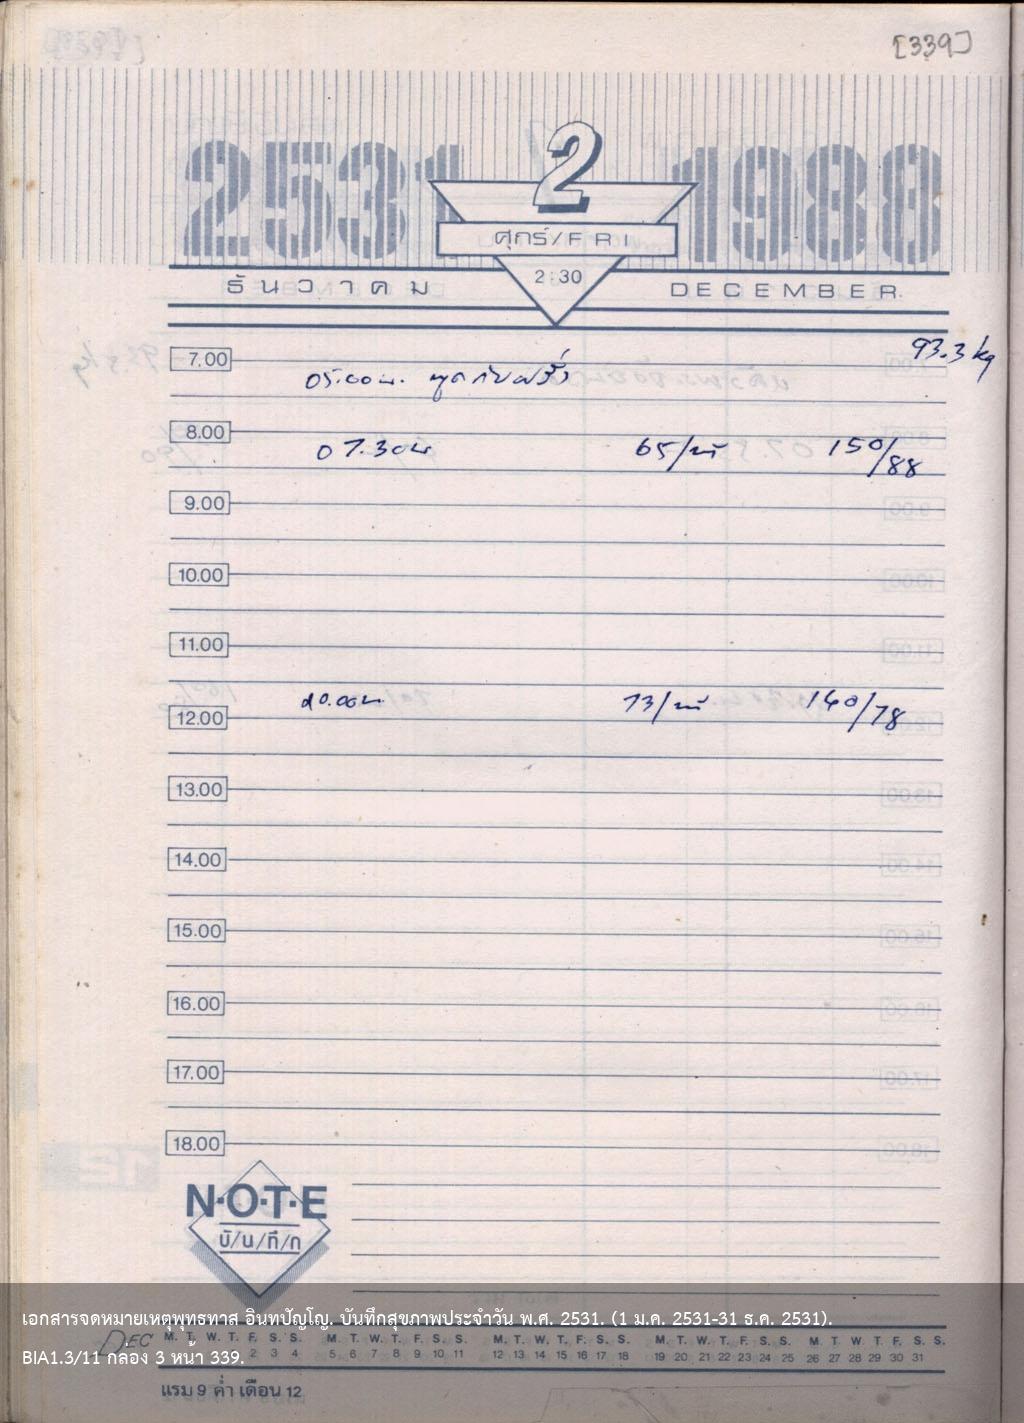 [339]
2531
2
1988
ศุกร์/FRI
2 30
ธันวาคม
DECEMBER.
93.3 kg
7.00
05.00 น. พูดกับฝรั่ง
8.00
07.30 น 65/นาที 150/88
9.00
10.00
11.00
20.00 น 73/นาที 140/78
12.00
13.00
14.00
15.00
16.00
17.00
18.00
N·O·T·E
บั/น/ทึ/ก
เอกสารจดหมายเหตุพุทธทาส อินทปัญโญ. บันทึกสุขภาพประจำวัน พ.ศ. 2531. (1 ม.ค. 2531-31 ธ.ค. 2531).
DEC M. T. W. T. F. S. S. M. T. W. T. F. S. S. M. T. W. T. F. S. S. M. T. W. T. F. S. S. M. T. W. T. F. S. S.
2 3 4 5 6 7 8 9 10 11 12 13 14 15 16 17 18 19 20 21 22 23 24 25 26 27 28 29 30 31
BIA1.3/11 กล่อง 3 หน้า 339.
แรม 9 ค่ำ เดือน 12